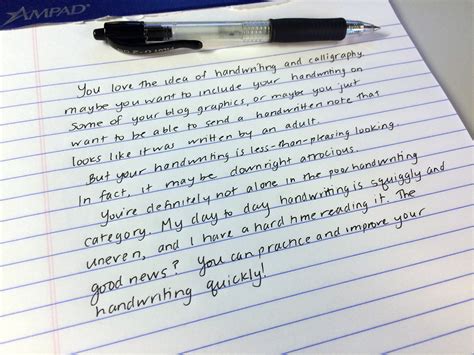 AMPAD®
You love the idea of handwriting and calligraphy
maybe you want to include your handwriting on
some of your blog graphics, or maybe you just
want to be able to send a handwritten note that
looks like it was written by an adult.
But your handwriting is less-than-pleasing looking.
In fact, it may be downright atrocious.
You're definitely not alone in the poor handwriting
category. My day to day handwriting is squiggly and
uneven, and I have a hard time reading it. The
good news? You can practice and improve your
handwriting quickly!